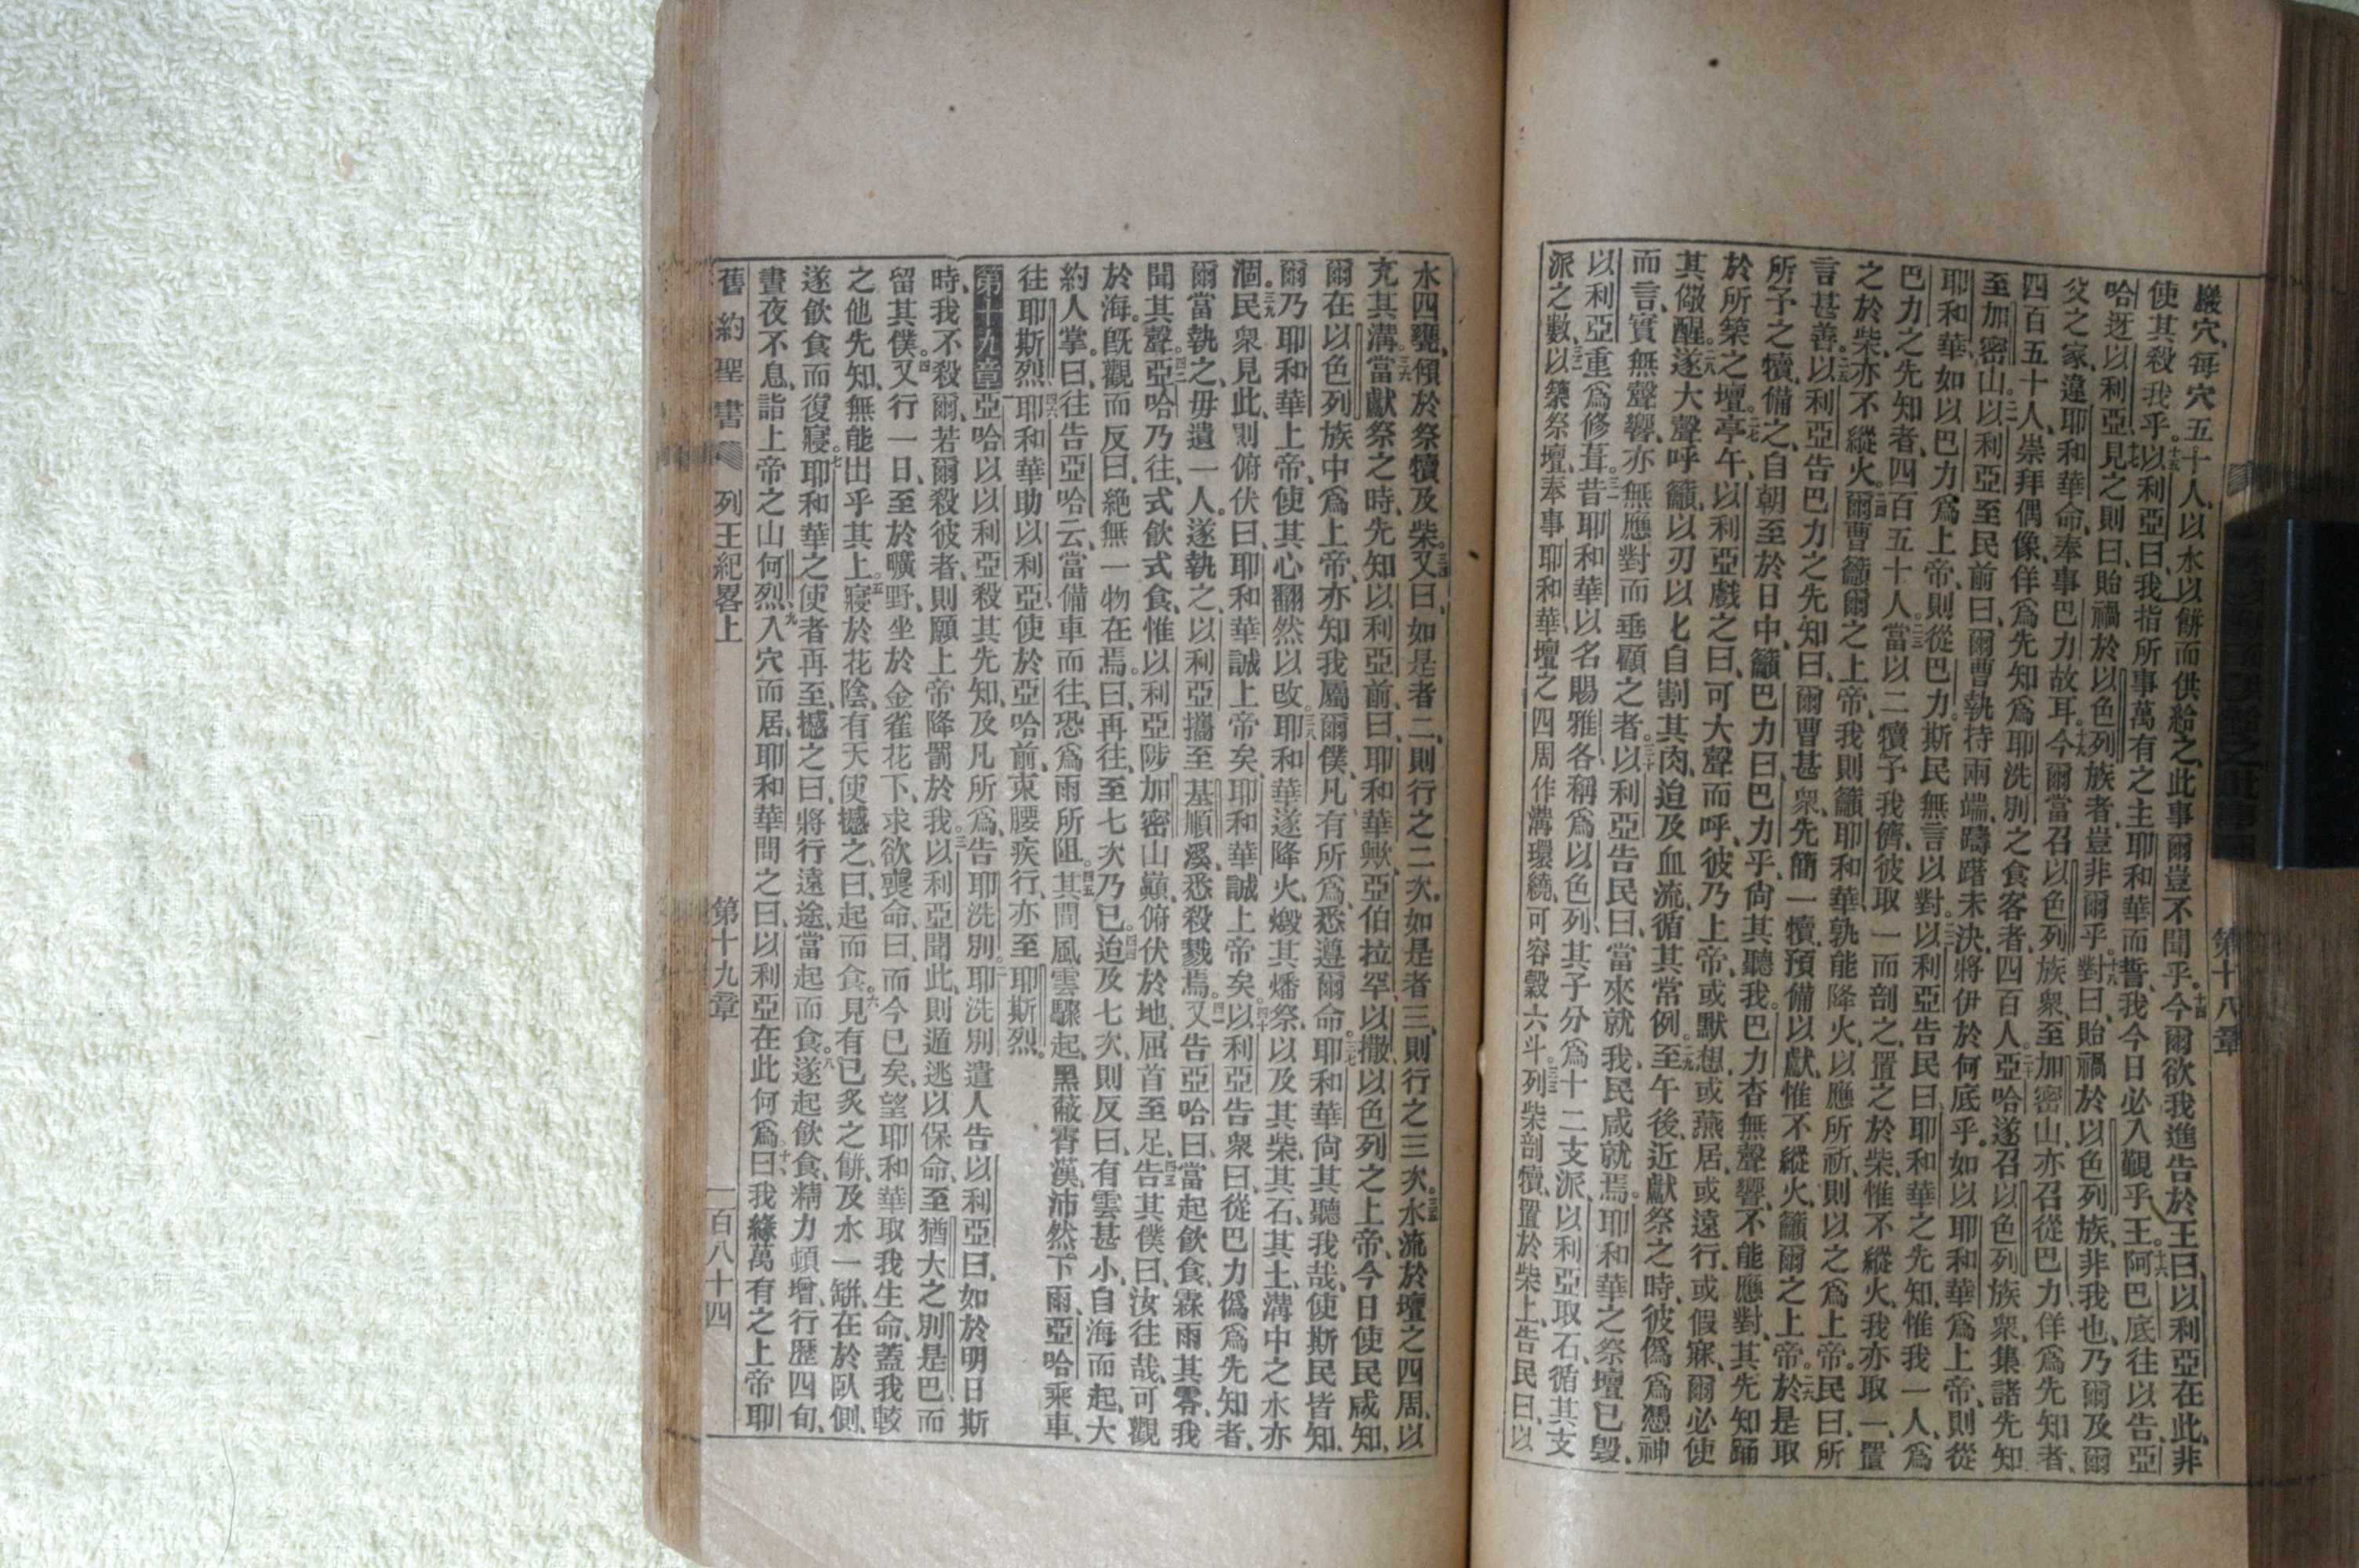 第十八章
巖穴、每穴五十人、以水以餅而供給之、此事爾豈不聞乎。今爾欲我進告於王曰、以利亞在此、非
使其殺我乎。以利亞曰、我指所事萬有之主耶和華而誓、我今日必入覲乎王。阿巴底往以告、亞
哈迓以利亞、見之則曰、貽禍於以色列族者、豈非爾乎。對曰、貽禍於以色列族、非我也、乃爾及爾
父之家、違耶和華命、奉事巴力故耳。今爾當召以色列族衆、至加密山、亦召從巴力佯爲先知者、
四百五十人、崇拜偶像、佯爲先知、爲耶洗別之食客者、四百人、亞哈遂召以色列族衆、集諸先知
至加密山。以利亞至民前曰、爾曹執持兩端、躊躇未決、將伊於何底乎。如以耶和華爲上帝、則從
耶和華、如以巴力爲上帝、則從巴力。斯民無言以對。以利亞告民曰、耶和華之先知、惟我一人、爲
巴力之先知者、四百五十人。當以二犢予我儕、彼取一而剖之、置之於柴、惟不縱火、我亦取一、置
之於柴、亦不縱火。爾曹籲爾之上帝、我則籲耶和華、孰能降火、以應所祈、則以之爲上帝。民曰、所
言甚善。以利亞告巴力之先知曰、爾曹甚衆、先簡一犢、預備以獻、惟不縱火、籲爾之上帝。於是取
所予之犢、備之、自朝至於日中、籲巴力曰、巴力乎、尙其聽我。巴力杳無聲響、不能應對、其先知踊
於所築之壇。亭午、以利亞戲之曰、可大聲而呼、彼乃上帝、或默想、或燕居、或遠行、或假寐、爾必使
其儆醒。遂大聲呼籲、以刃以匕自割其肉、迫及血流、循其常例。至午後、近獻祭之時、彼僞爲憑神
而言、實無聲響、亦無應對、而垂顧之者。以利亞告民曰、當來就我、民咸就焉。耶和華之祭壇已毀、
以利亞重爲修葺。昔耶和華以名賜雅各、稱爲以色列、其子分爲十二支派、以利亞取石、循其支
派之數、以築祭壇、奉事耶和華、壇之四周作溝環繞、可容穀六斗。列柴剖犢、置於柴上、告民曰、以
水四甕、傾於祭犢及柴。又曰、如是者二、則行之二次、如是者三、則行之三次。水流於壇之四周、以
充其溝。當獻祭之時、先知以利亞前曰、耶和華歟、亞伯拉罕、以撒、以色列之上帝、今日使民咸知、
爾在以色列族中爲上帝、亦知我屬爾僕、凡有所爲、悉遵爾命。耶和華尙其聽我哉、使斯民皆知、
爾乃耶和華上帝、使其心翻然以改。耶和華遂降火、燬其燔祭、以及其柴、其石、其土、溝中之水亦
涸。民衆見此、則俯伏曰、耶和華誠上帝矣、耶和華誠上帝矣。以利亞告衆曰、從巴力僞爲先知者、
爾當執之、毋遺一人。遂執之、以利亞攜至基順溪、悉殺戮焉。又告亞哈曰、當起飲食、霖雨其零、我
聞其聲。亞哈乃往、式飲式食、惟以利亞陟加密山巔、俯伏於地、屈首至足、告其僕曰、汝往哉、可觀
於海。旣觀而反曰、絕無一物在焉。曰、再往、至七次乃已。迨及七次、則反曰、有雲甚小、自海而起、大
約人掌。曰、往告亞哈云、當備車而往、恐爲雨所阻。其間風雲驟起、黑蔽霄漢、沛然下雨、亞哈乘車、
往耶斯烈、耶和華助以利亞、使於亞哈前、束腰疾行、亦至耶斯烈。
第十九章 亞哈以以利亞殺其先知、及凡所爲、告耶洗別。耶洗別遣人告以利亞曰、如於明日斯
時、我不殺爾、若爾殺彼者、則願上帝降罰於我。以利亞聞此、則遁逃以保命、至猶大之別是巴而
留其僕。又行一日、至於曠野、坐於金雀花下、求欲喪命、曰、而今已矣、望耶和華取我生命、蓋我較
之他先知、無能出乎其上。寢於花陰、有天使撼之、曰、起而食。見有已炙之餅、及水一缾、在於臥側、
遂飲食而復寢。耶和華之使者再至、撼之曰、將行遠途、當起而食。遂起飲食、精力頓增、行歷四旬、
晝夜不息、詣上帝之山何烈、入穴而居、耶和華問之曰、以利亞在此何爲。曰、我緣萬有之上帝耶
舊約聖書 列王紀畧上 第十九章 一百八十四